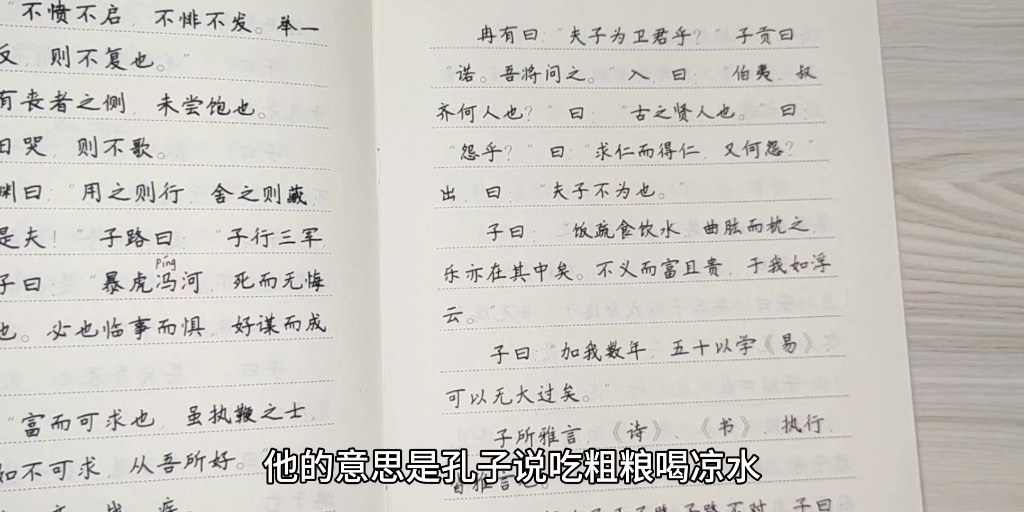 “不愤不启，不悱不发。举一
反，则不复也。”
有丧者之侧，未尝饱也。
日哭，则不歌。
渊曰：“用之则行，舍之则藏，
是夫！”子路曰：“子行三军，
píng
子曰：“暴虎冯河，死而无悔
也。必也临事而惧，好谋而成
“富而可求也，虽执鞭之士，
如不可求，从吾所好。
冉有曰：“夫子为卫君乎？”子贡曰：
“诺。吾将问之。”入，曰：“伯夷、叔
齐何人也？”曰：“古之贤人也。”曰：
“怨乎？”曰：“求仁而得仁，又何怨？”
出，曰：“夫子不为也。”
子曰：“饭疏食饮水，曲肱而枕之，
乐亦在其中矣。不义而富且贵，于我如浮
云。”
子曰：“加我数年，五十以学《易》，
可以无大过矣。”
子所雅言，《诗》、《书》、执行，
皆雅言也。
子路不对。子曰：
他的意思是孔子说吃粗粮喝凉水